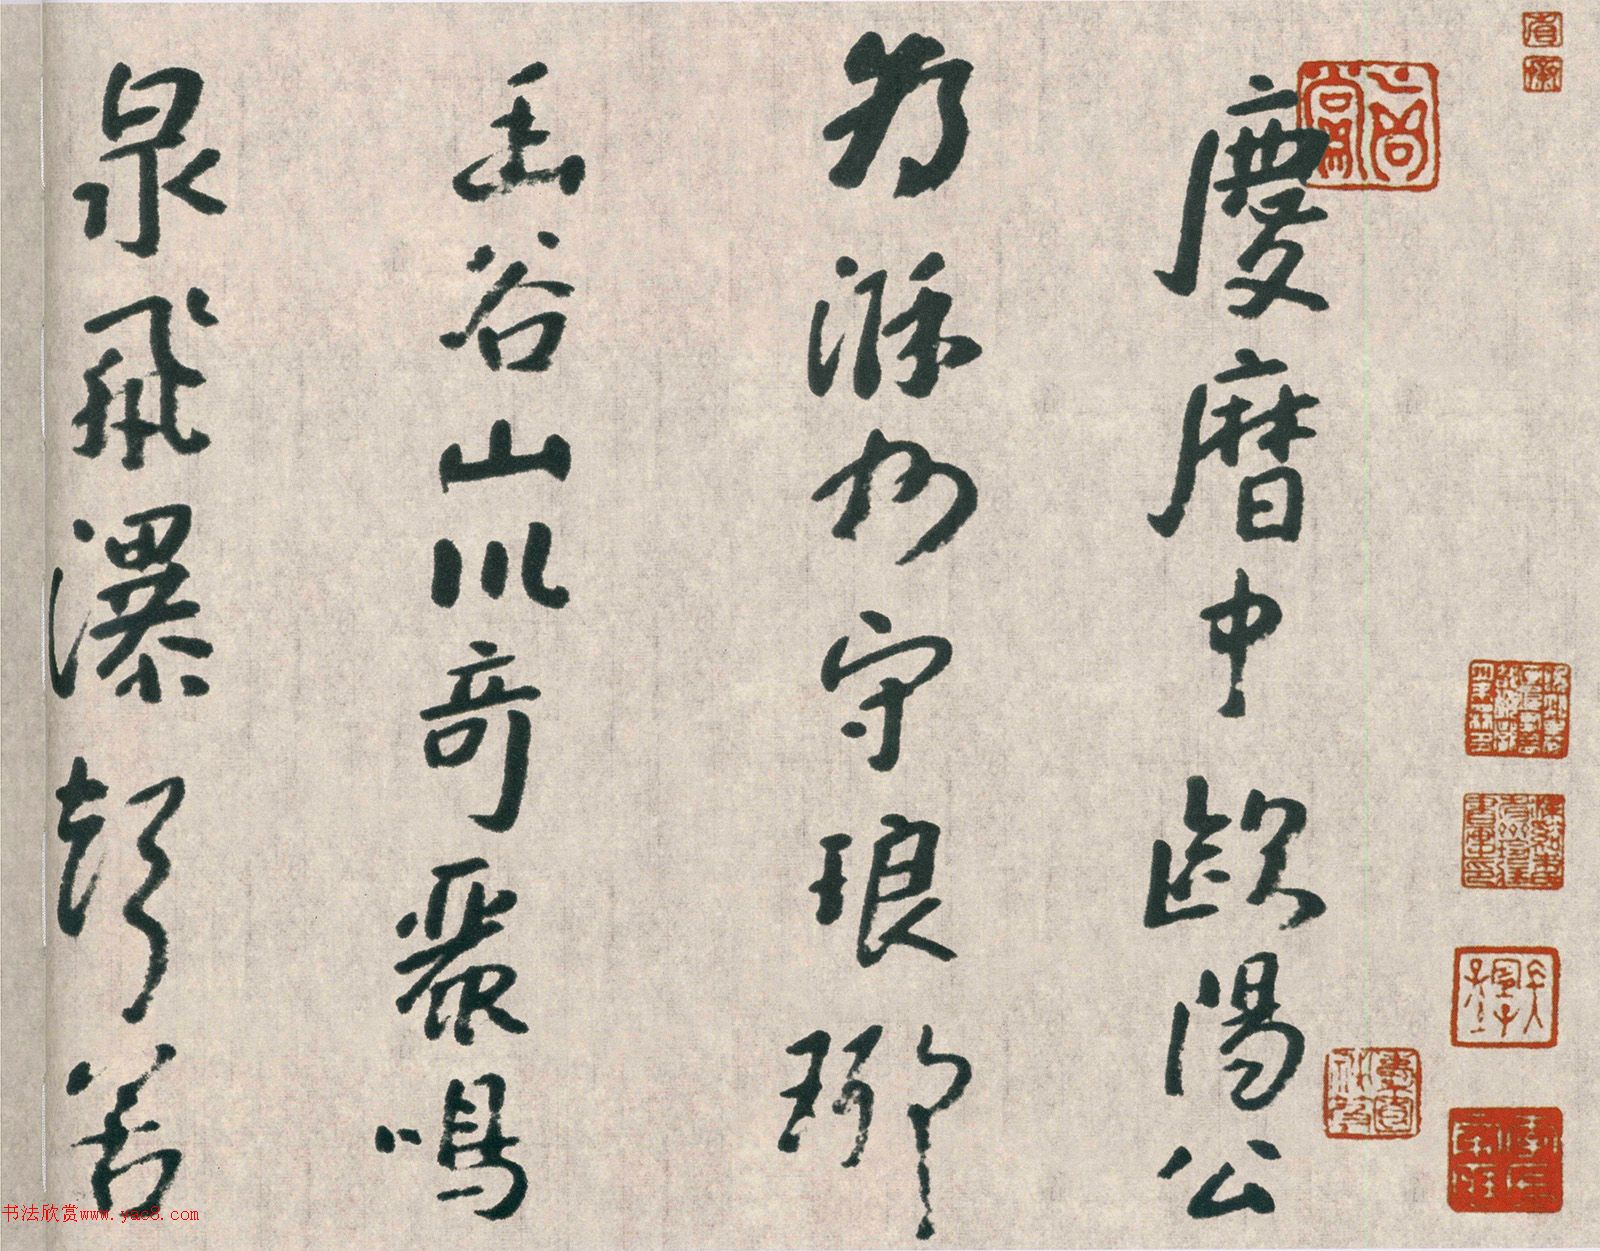 慶曆中歐陽公
為滁州守琅琊
幽谷山川奇麗鳴
泉飛瀑聲若
書法欣赏www.yac8.com